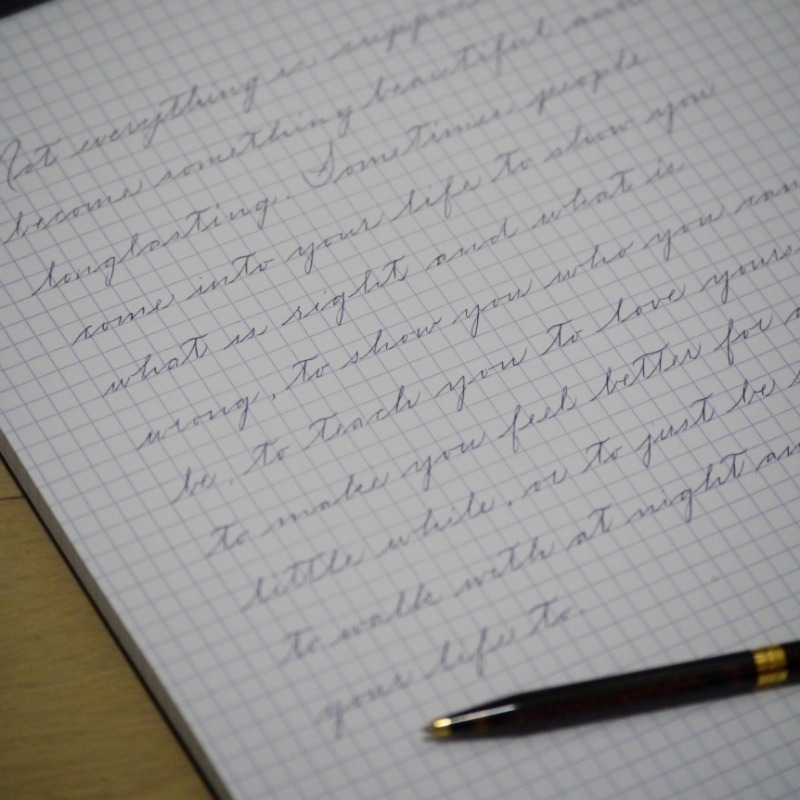 Not everything is
become something beautiful
longlasting. Sometimes people
come into your life to show you
what is right and what is
wrong, to show you who you can
be, to teach you to love
to make you feel better for
little while, or to just be
to walk with at night
your life to.